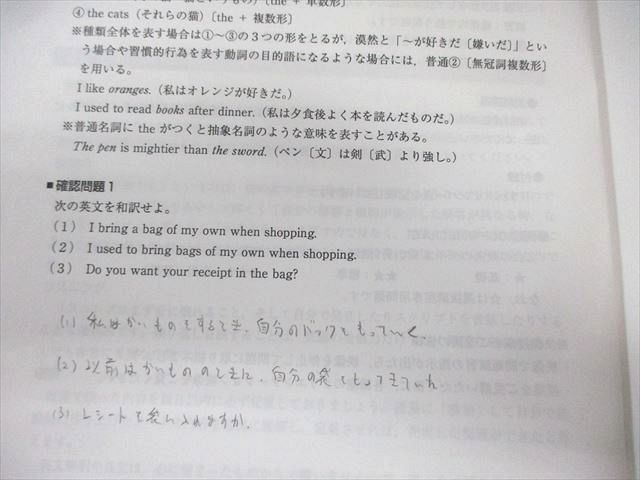 ④ the cats（それらの猫）〔the + 複数形〕
※種類全体を表す場合は①〜③の３つの形をとるが，漠然と「〜が好きだ〔嫌いだ〕」とい
う場合や習慣的行為を表す動詞の目的語になるような場合には，普通②〔無冠詞複数形〕
を用いる。
I like oranges.（私はオレンジが好きだ。）
I used to read books after dinner.（私は夕食後よく本を読んだものだ。）
※普通名詞に the がつくと抽象名詞のような意味を表すことがある。
The pen is mightier than the sword.（ペン〔文〕は剣〔武〕より強し。）
■確認問題１
次の英文を和訳せよ。
(１) I bring a bag of my own when shopping.
(２) I used to bring bags of my own when shopping.
(３) Do you want your receipt in the bag?
(1) 私はかいものをするとき、自分のバックをもっていく
(2) 以前はかいもののときに、自分の袋をもってきていた
(3) レシートを袋に入れますか。